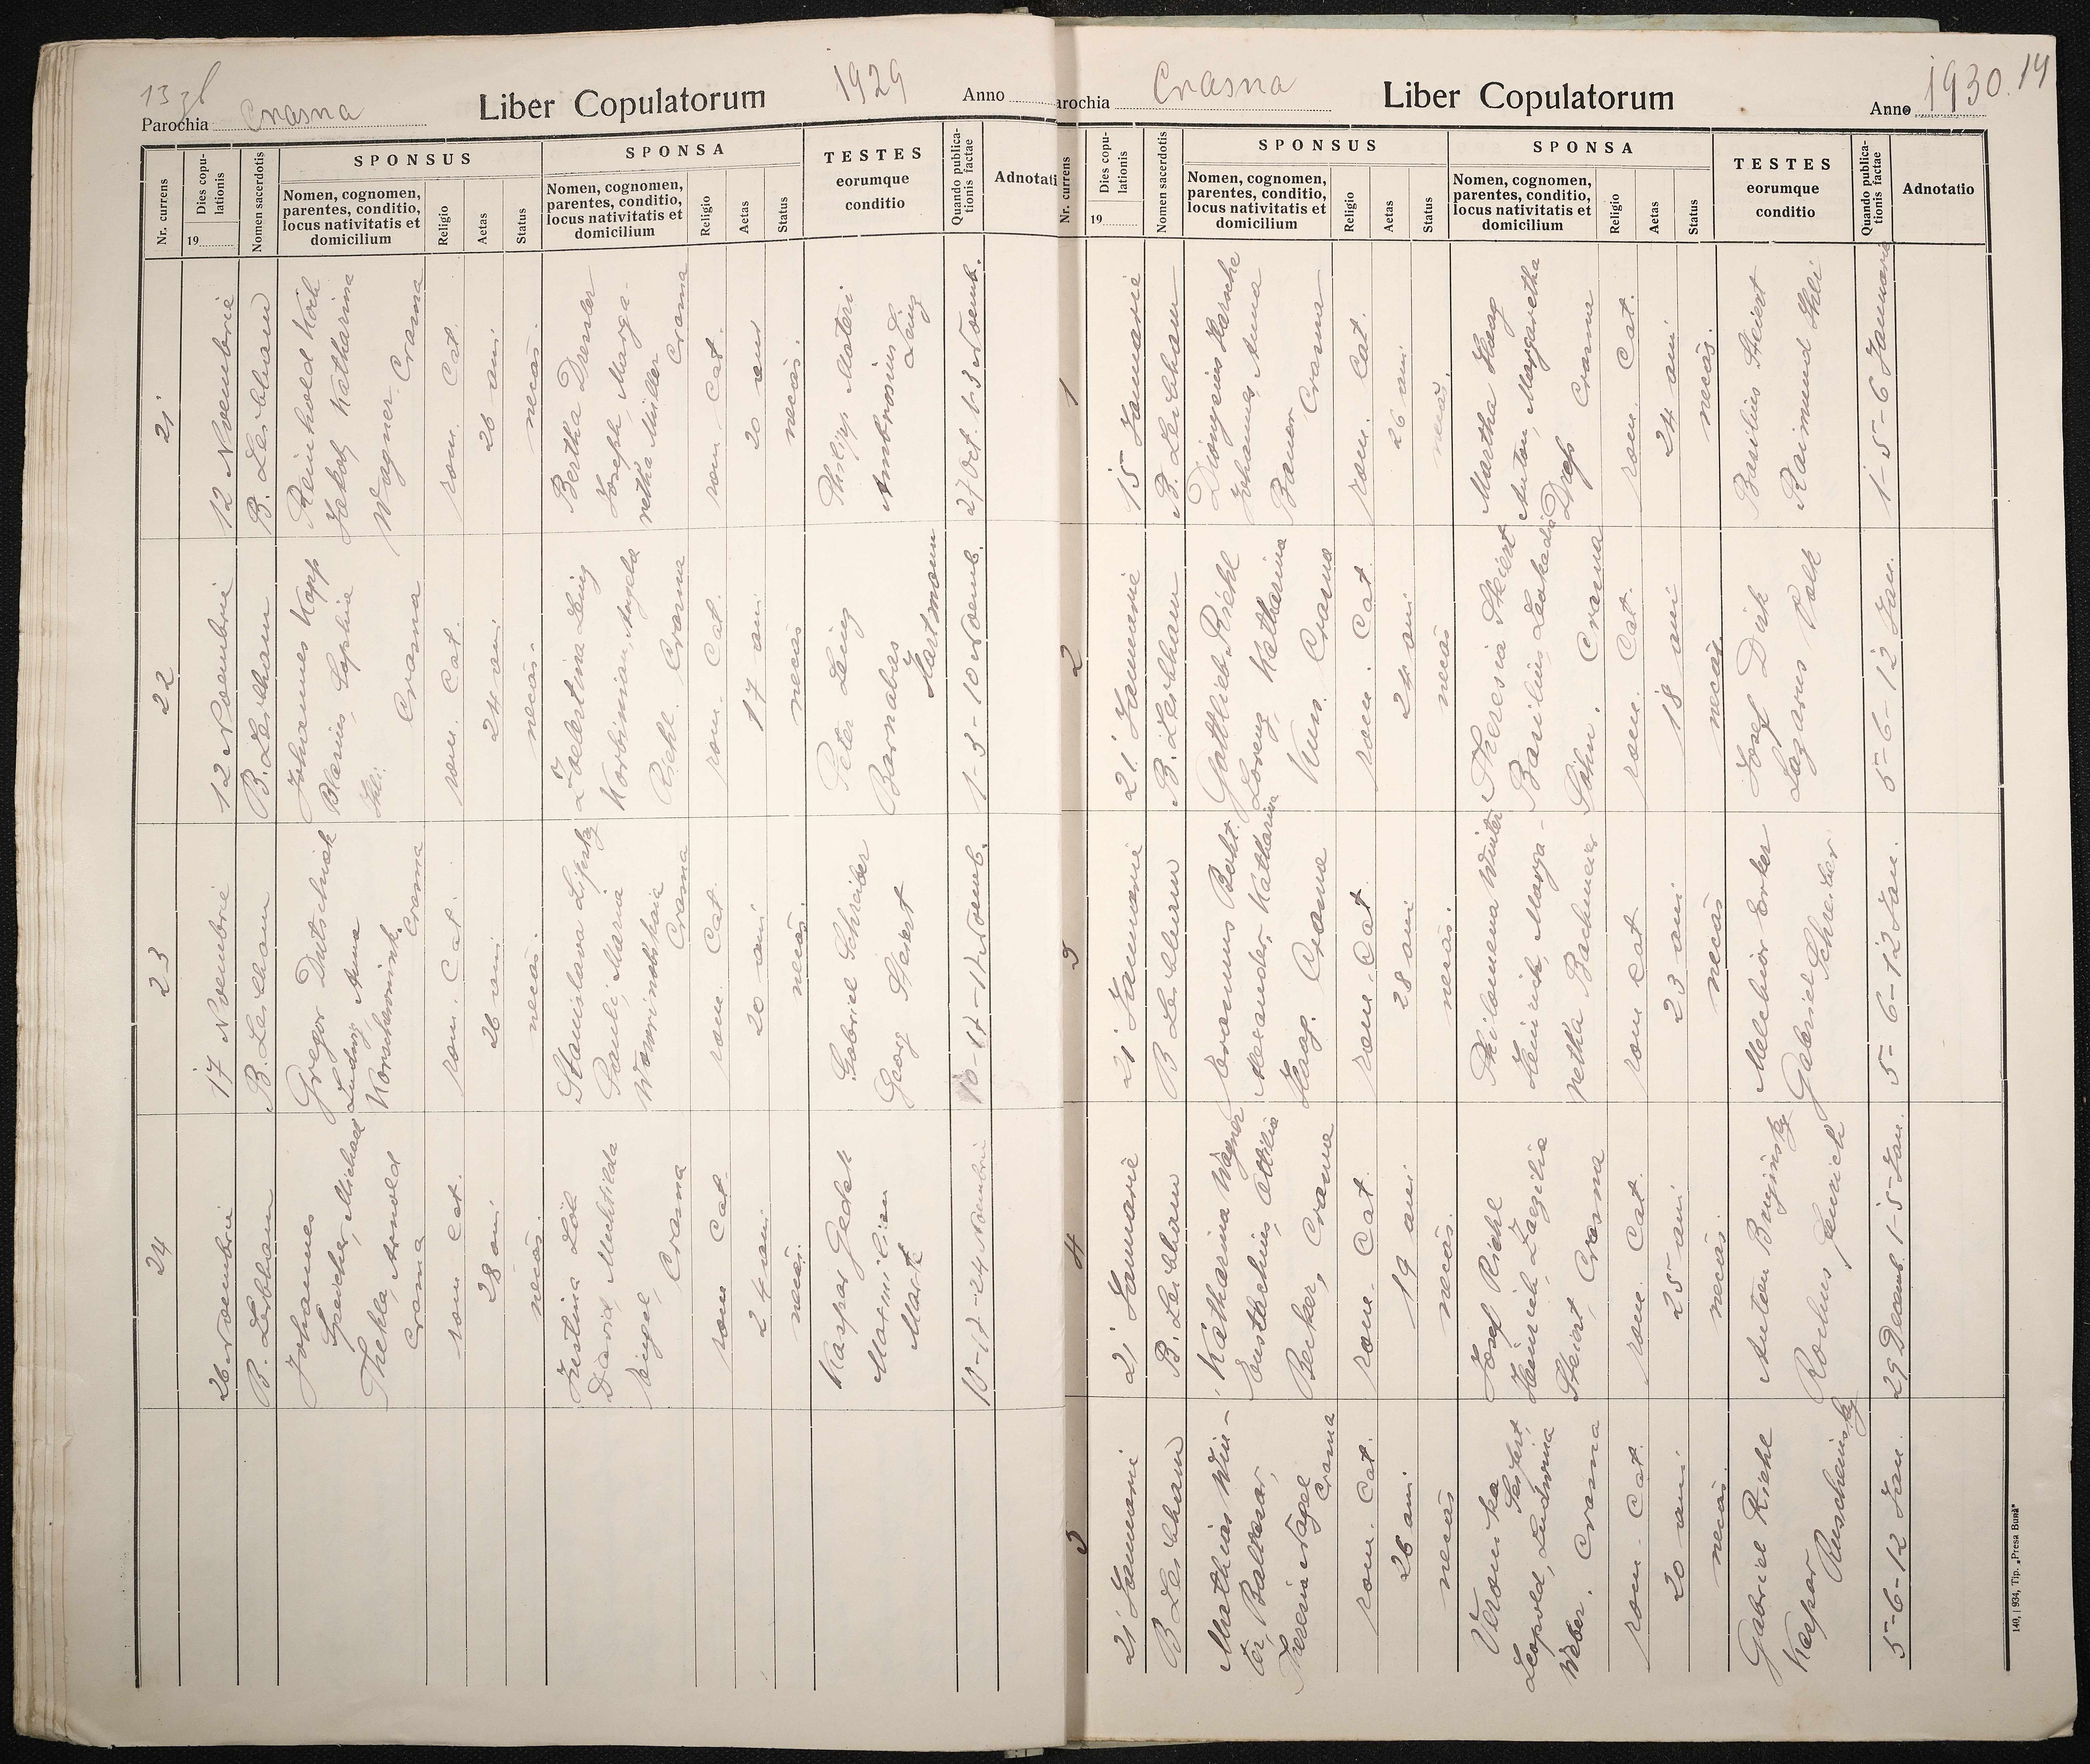 13 zl
Parochia Crasna
Liber Copulatorum
1929
Anno
Nr. currens
Dies copu-
lationis
19
Nomen sacerdotis
SPONSUS
Nomen, cognomen,
parentes, conditio,
locus nativitatis et
domicilium
Religio
Aetas
Status
SPONSA
Nomen, cognomen,
parentes, conditio,
locus nativitatis et
domicilium
Religio
Aetas
Status
TESTES
eorumque
conditio
Quando publica-
tionis factae
Adnotati
21
12 Noembrie
B. Leibham
Reinhold Koch
Jakob Katharina
Wagner. Crasna
rom. Cat.
26 ani
necăs.
Bertha Dressler
Joseph, Marga-
retha Müller
Crasna
rom. Cat.
20 ani
necăs.
Philipp Materi
Ambrosius
Leinz
27 Oct. 1-3 Noemb.
22
12 Noembrie
B. Leibham
Johannes Kopp
Blasius, Sophie
Ihli.
Crasna
rom. Cat.
24 ani
necăs.
Zoelestina Leinz
Korbinian, Angela
Riehl. Crasna
rom. Cat.
17 ani
necăs
Peter Leinz
Barnabas
Hartmann
1-3-10 Noemb.
23
17 Noembrie
B. Leibham
Gregor Dutschak
Ludwig, Anna
Crasna
rom. Cat.
26 ani
necăs.
Stanislava
Pauli, Maria
Crasna
rom. Cat.
20 ani
necăs.
Gabriel Schreiber
Georg Steiert
10-17-17 Noemb.
24
26 Noembrie
B. Leibham
Johannes
Speicher, Michael
Thekla, Arnold
Crasna
rom Cat.
28 ani
necăs.
Justina Löb
David, Mechtilda
Crasna
rom Cat
24 ani
necăs.
Kaspar Gedak
Maximilian
10-17-24 Noembrie
arochia Crasna
Liber Copulatorum
Anno 1930. 14
Nr. currens
Dies copu-
lationis
19
Nomen sacerdotis
SPONSUS
Nomen, cognomen,
parentes, conditio,
locus nativitatis et
domicilium
Religio
Aetas
Status
SPONSA
Nomen, cognomen,
parentes, conditio,
locus nativitatis et
domicilium
Religio
Aetas
Status
TESTES
eorumque
conditio
Quando publica-
tionis factae
Adnotatio
1
15 Januarie
B. Leibham
Dionysius Harsche
Johannes, Anna
Bauer
Crasna
rom. Cat.
26 ani
necăs.
Martha Haag
Anton, Margaretha
Crasna
rom. Cat.
24 ani
necăs.
Basilius Steiert
Raimund Ihli
1-5-6 Januarie
2
21 Januarie
B. Leibham
Gottlieb Riehl
Lorenz, Katharina
Kuss. Crasna
rom. Cat
24 ani
necăs
Theresia Steiert
Basilius Leokadia
Söhn. Crasna
rom. Cat.
18 ani
necăs.
Josef Dirk
Lazarus Volk
5-6-12 Jan.
3
21 Januarie
B Leibham
Erasmus Bohl.
Alexander, Katharina
Haag. Crasna
rom. Cat
28 ani
necăs.
Philomena Winter
Heinrich, Marga-
retha Bachmeier
rom Cat
23 ani
necăs
Melchior Erker
Gabriel Schreiber
5-6-12 Jan.
4
21 Januarie
B. Leibham
Katharina Wagner
Eustachius, Ottilia
Becker, Crasna
rom. Cat.
19 ani
necăs.
Josef Riehl
Heinrich, Zäzilia
Steiert, Crasna
rom. Cat.
25 ani
necăs.
Anton Bruginsky
Rochus Jenrich
29 Decemb. 1-5-Jan.
5
21 Januarie
B Leibham
Mathias Win-
ter, Baltasar,
Theresia Nagel
Crasna
rom. Cat.
26 ani.
necăs
Veronika
Seifert,
Leopold, Ludwina
Weber. Crasna
rom. Cat.
20 ani
necăs.
Gabriel Riehl
Kaspar
Ruscheinsky
5-6-12 Jan.
140, 1934, Tip. „Presa Bună"